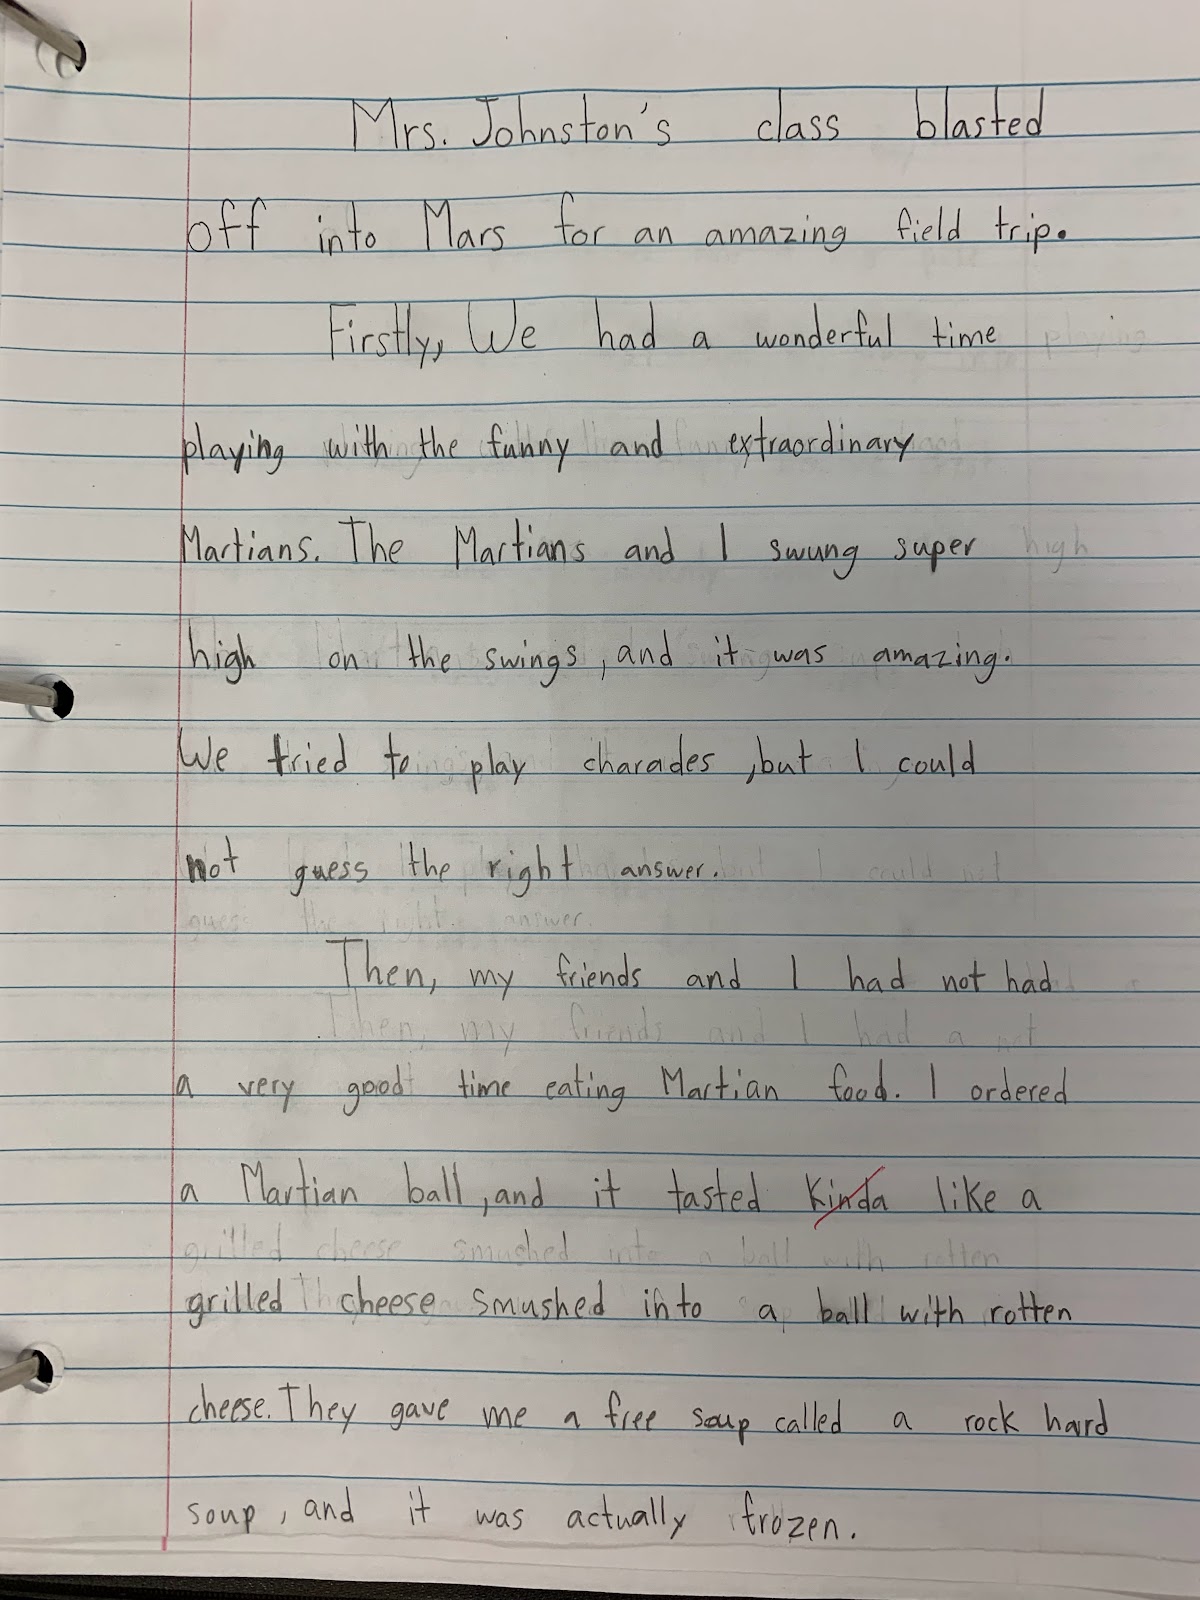 Mrs. Johnston's class blasted
off into Mars for an amazing field trip.
Firstly, We had a wonderful time playing
playing with the funny and extraordinary
Martians. The Martians and I swung super high
high on the swings, and it was amazing.
We tried to play charades, but I could
not guess the right answer. but I could not
guess the right answer.
Then, my friends and I had not had
Then, my friends and I had a not
a very good time eating Martian food. I ordered
a Martian ball, and it tasted kinda like a
grilled cheese smushed into a ball with rotten
grilled cheese smushed into a ball with rotten
cheese. They gave me a free soup called a rock hard
soup, and it was actually frozen.